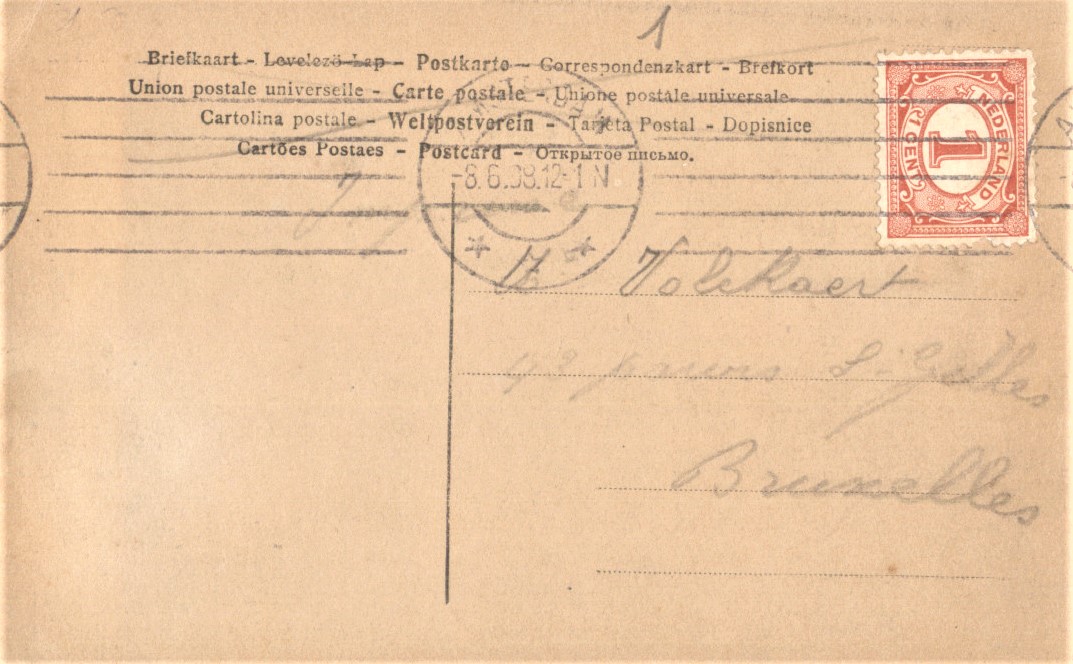 1
Briefkaart - Levelező-Lap - Postkarte - Correspondenzkart - Brefkort
Union postale universelle - Carte postale - Unione postale universale
Cartolina postale - Weltpostverein - Tarjeta Postal - Dopisnice
Cartões Postaes - Postcard - Открытое письмо.
-8.6.08.12-1 N.
NEDERLAND
1
1 CENT
Volckaert
Bruxelles